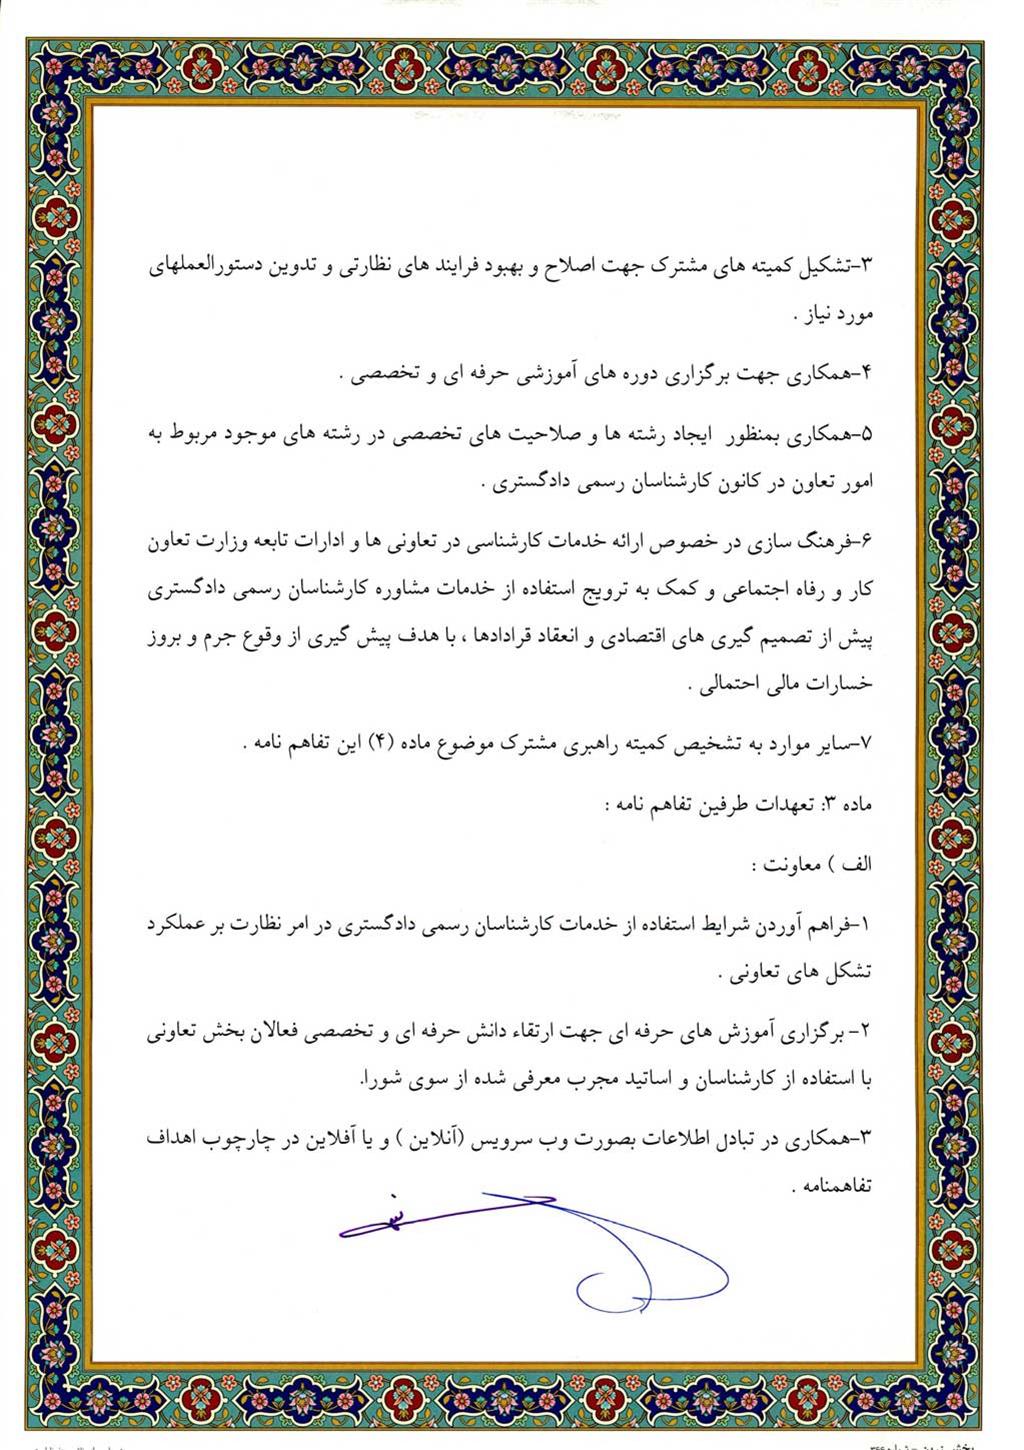 ۳-تشکیل کمیته های مشترک جهت اصلاح و بهبود فرایند های نظارتی و تدوین دستورالعملهای
مورد نیاز .
۴-همکاری جهت برگزاری دوره های آموزشی حرفه ای و تخصصی .
۵-همکاری بمنظور ایجاد رشته ها و صلاحیت های تخصصی در رشته های موجود مربوط به
امور تعاون در کانون کارشناسان رسمی دادگستری .
۶-فرهنگ سازی در خصوص ارائه خدمات کارشناسی در تعاونی ها و ادارات تابعه وزارت تعاون
کار و رفاه اجتماعی و کمک به ترویج استفاده از خدمات مشاوره کارشناسان رسمی دادگستری
پیش از تصمیم گیری های اقتصادی و انعقاد قرادادها ، با هدف پیش گیری از وقوع جرم و بروز
خسارات مالی احتمالی .
۷-سایر موارد به تشخیص کمیته راهبری مشترک موضوع ماده (۴) این تفاهم نامه .
ماده ۳: تعهدات طرفین تفاهم نامه :
الف ) معاونت :
۱-فراهم آوردن شرایط استفاده از خدمات کارشناسان رسمی دادگستری در امر نظارت بر عملکرد
تشکل های تعاونی .
۲- برگزاری آموزش های حرفه ای جهت ارتقاء دانش حرفه ای و تخصصی فعالان بخش تعاونی
با استفاده از کارشناسان و اساتید مجرب معرفی شده از سوی شورا.
۳-همکاری در تبادل اطلاعات بصورت وب سرویس (آنلاین ) و یا آفلاین در چارچوب اهداف
تفاهمنامه .